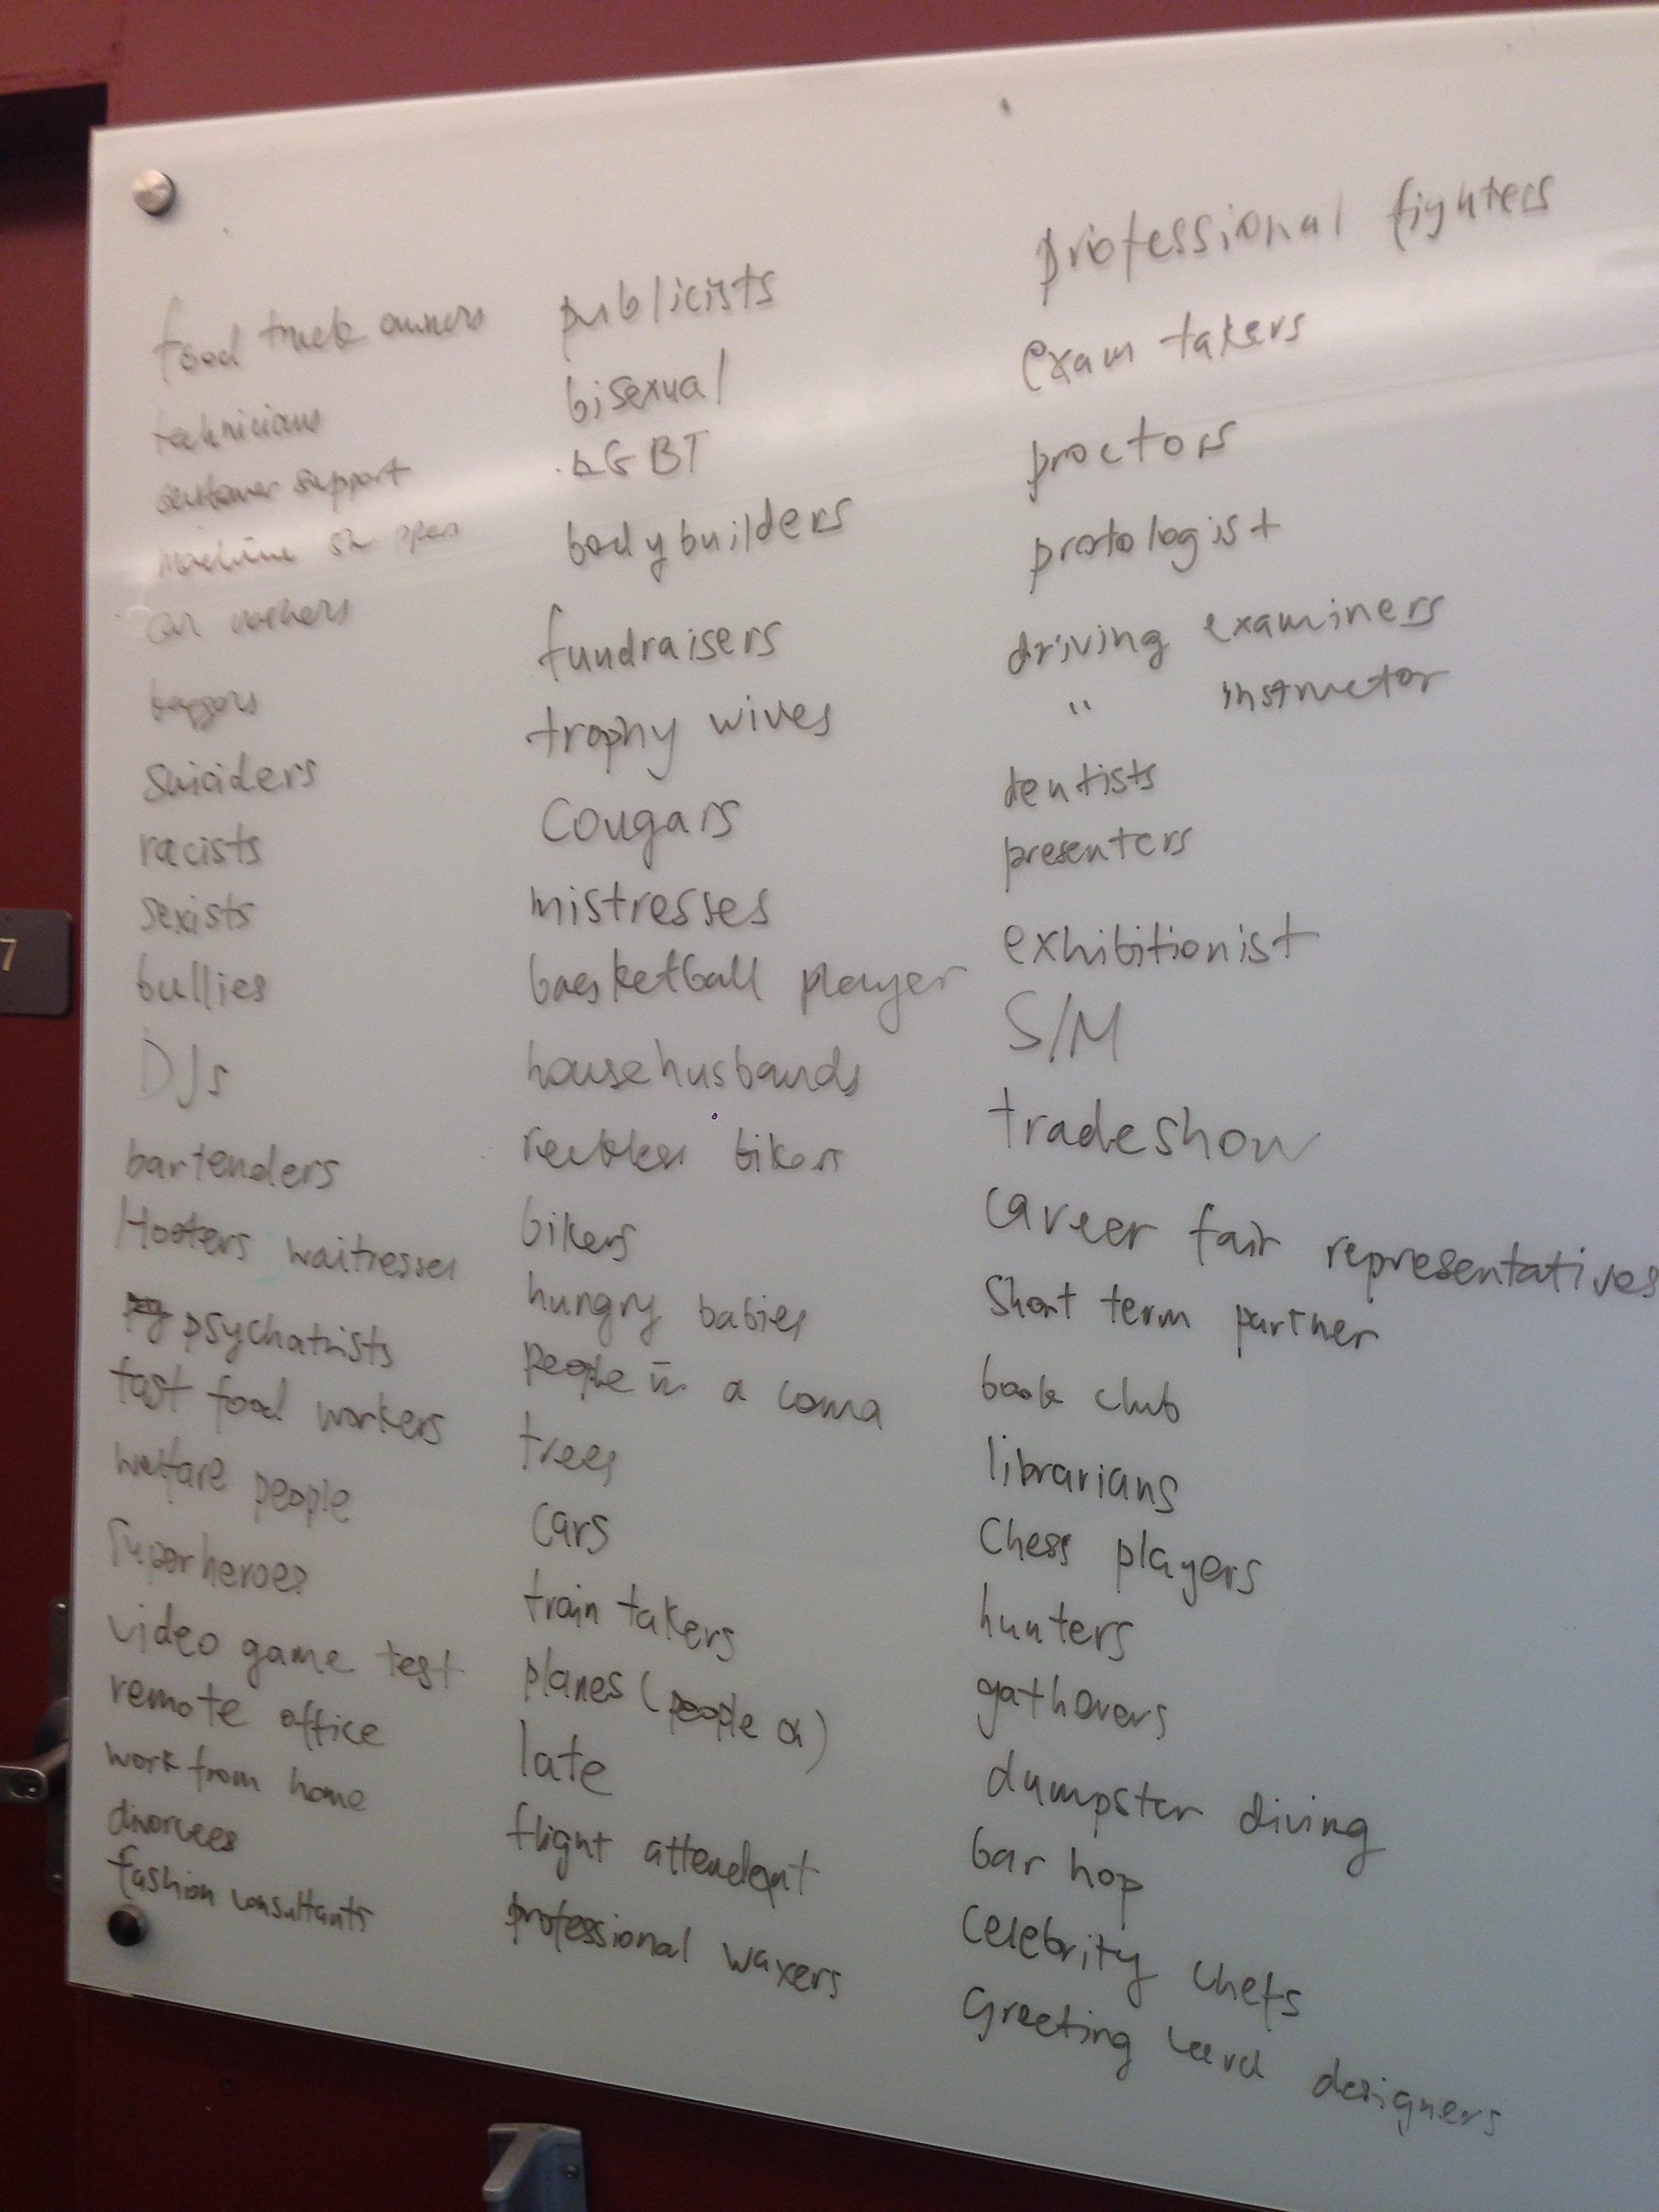 food truck owners
technicians
customer support
machine
car washers
beggars
suiciders
racists
sexists
bullies
DJs
bartenders
Hooters waitresses
psychatrists
fast food workers
welfare people
superheroes
video game test
remote office
work from home
divorcees
fashion consultants
publicists
bisexual
LGBT
bodybuilders
fundraisers
trophy wives
cougars
mistresses
basketball player
househusbands
reckless bikers
bikers
hungry babies
people in a coma
trees
cars
train takers
planes (people a)
late
flight attendant
professional waxers
professional fighters
exam takers
proctors
protologist
driving examiners
" instructor
dentists
presenters
exhibitionist
S/M
tradeshow
career fair representatives
short term partner
book club
librarians
chess players
hunters
gatherers
dumpster diving
bar hop
celebrity chefs
Greeting card designers
7